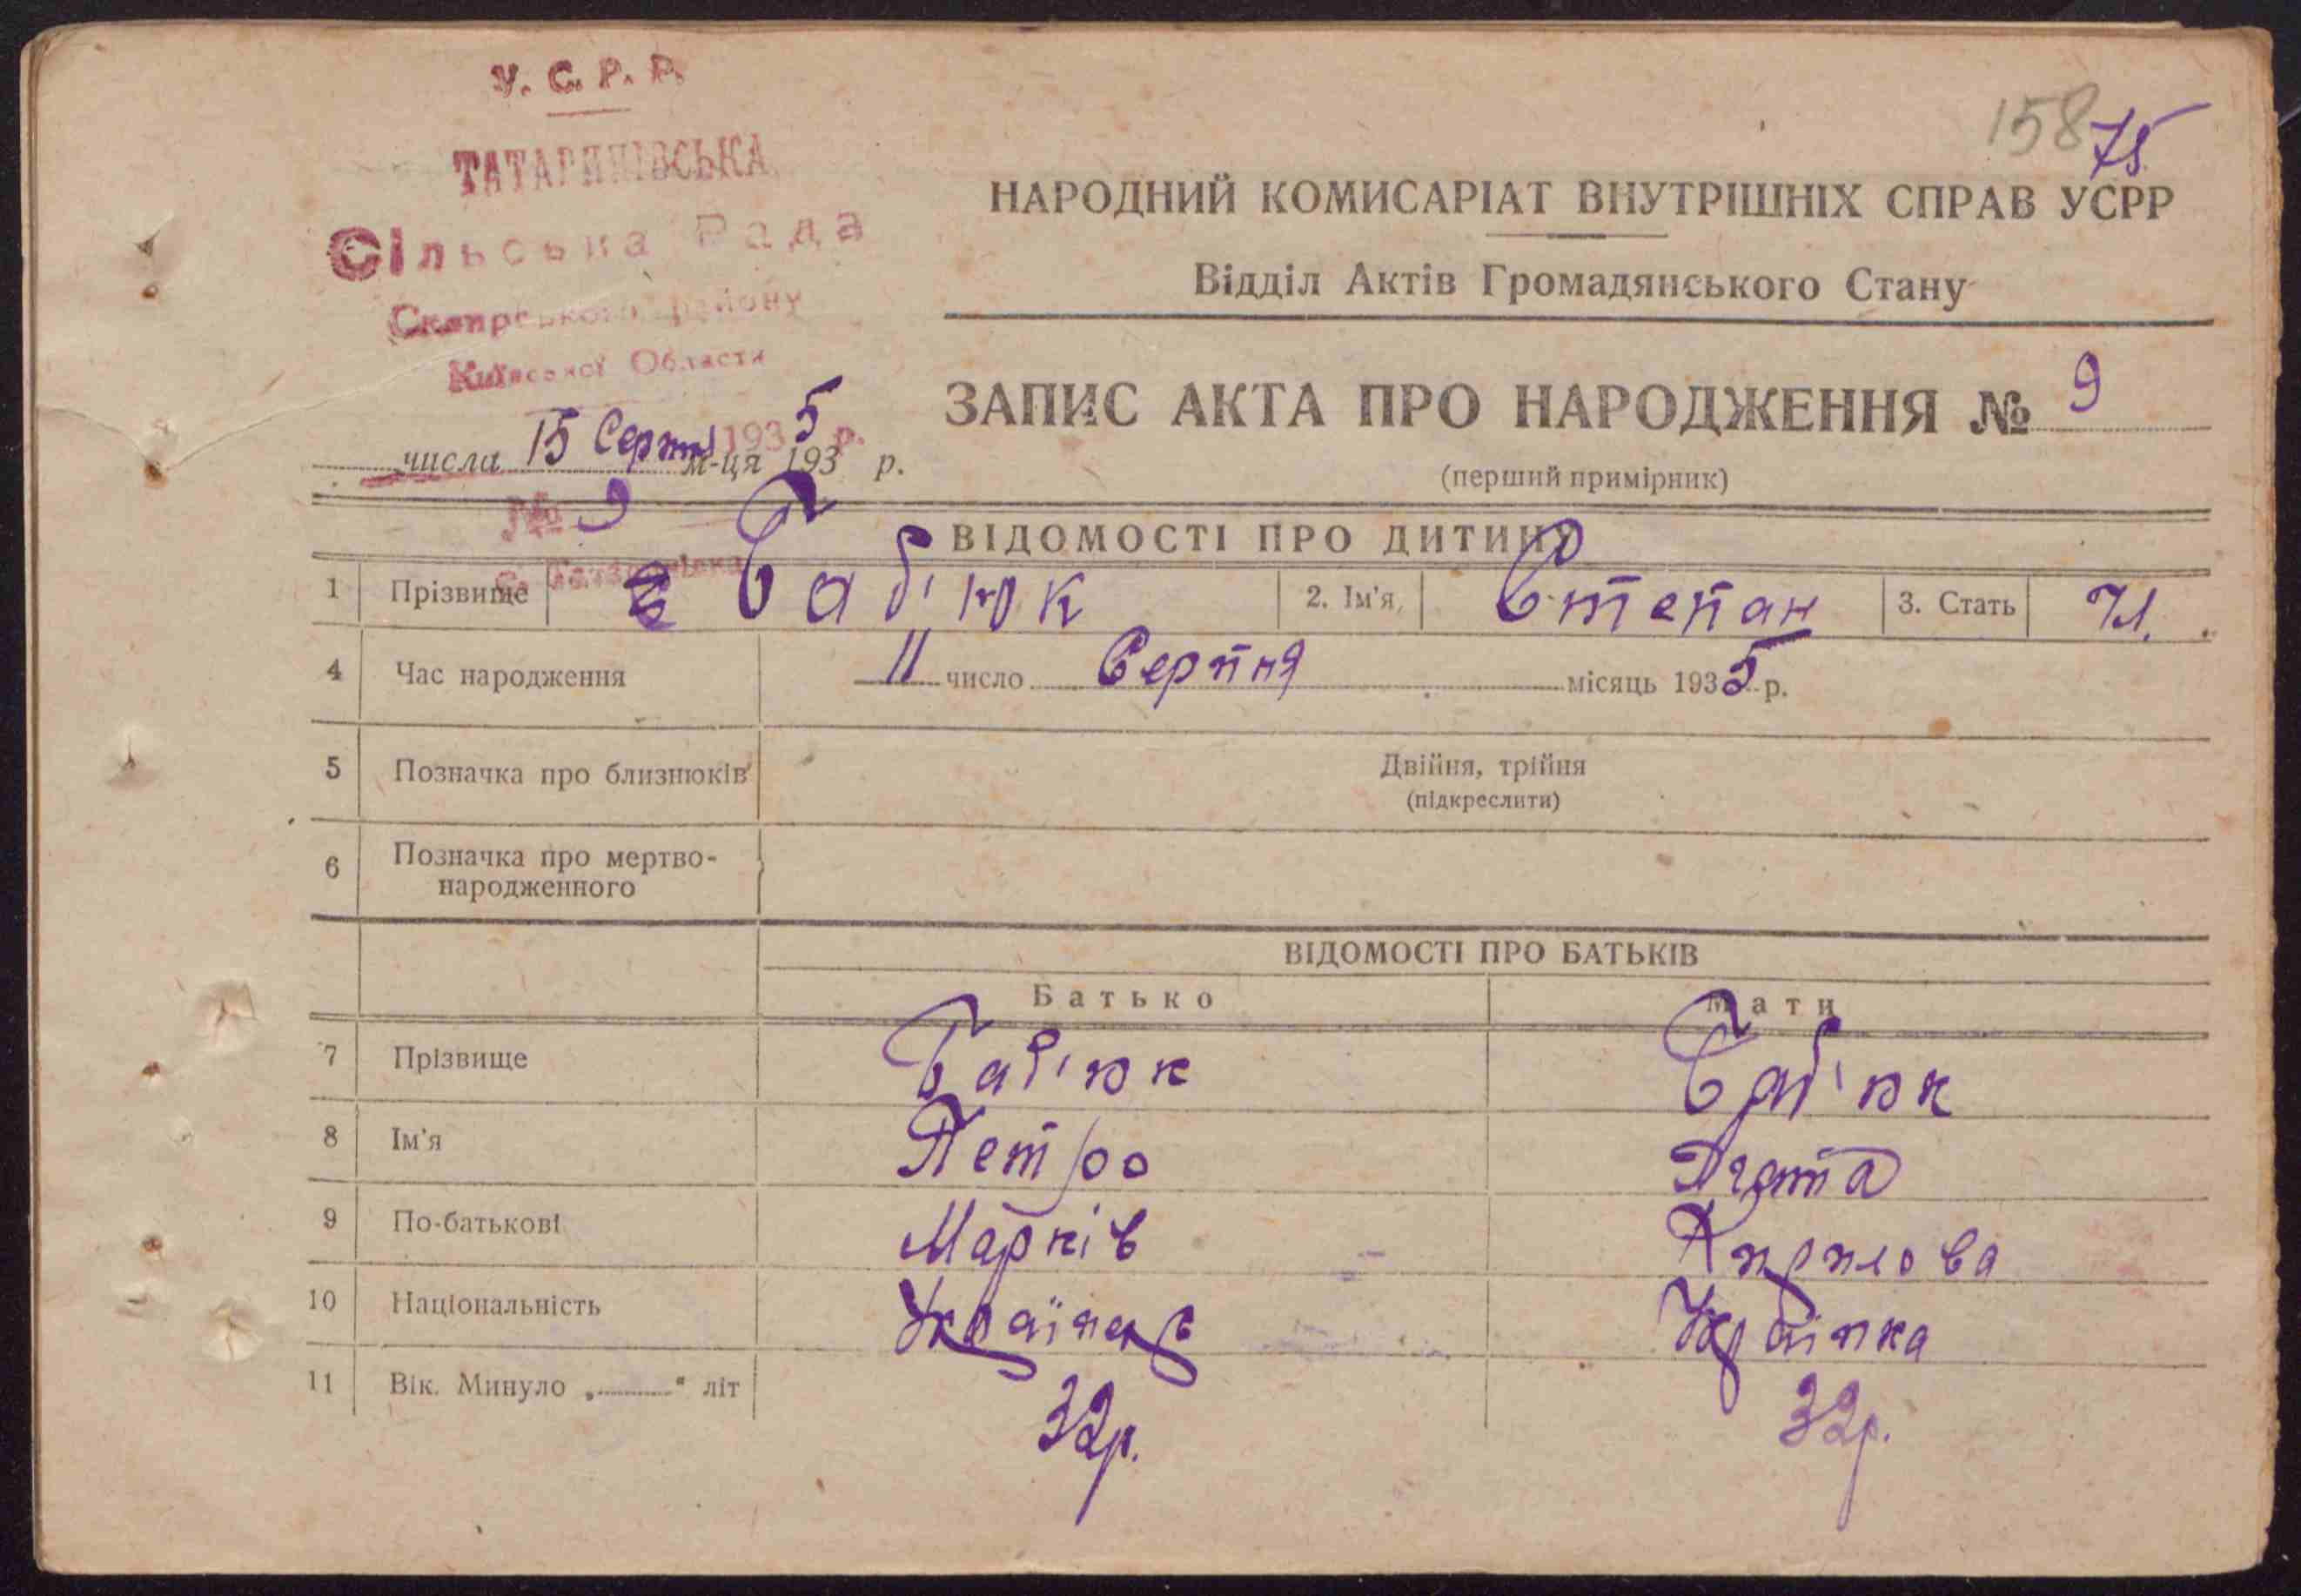 У. С. Р. Р.
ТАТАРИНІВСЬКА
Сільська Рада
Сквирського району
Київської Области
числа 15 Серпня м-ця 1935 р.
193 р.
№ 9
с. Татаринівка
158 75
НАРОДНИЙ КОМИСАРІАТ ВНУТРІШНІХ СПРАВ УСРР
Відділ Актів Громадянського Стану
ЗАПИС АКТА ПРО НАРОДЖЕННЯ № 9
(перший примірник)
ВІДОМОСТІ ПРО ДИТИНУ
1 Прізвище Бабіюк 2. Ім'я Степан 3. Стать Чл.
4 Час народження 11 число Серпня місяць 1935 р.
5 Позначка про близнюків Двійня, трійня
(підкреслити)
6 Позначка про мертво-
народженного
ВІДОМОСТІ ПРО БАТЬКІВ
Батько Мати
7 Прізвище Бабіюк Бабіюк
8 Ім'я Петро Ягата
9 По-батькові Марків Кирилова
10 Національність Українець Українка
11 Вік. Минуло „ “ літ 32р. 32р.